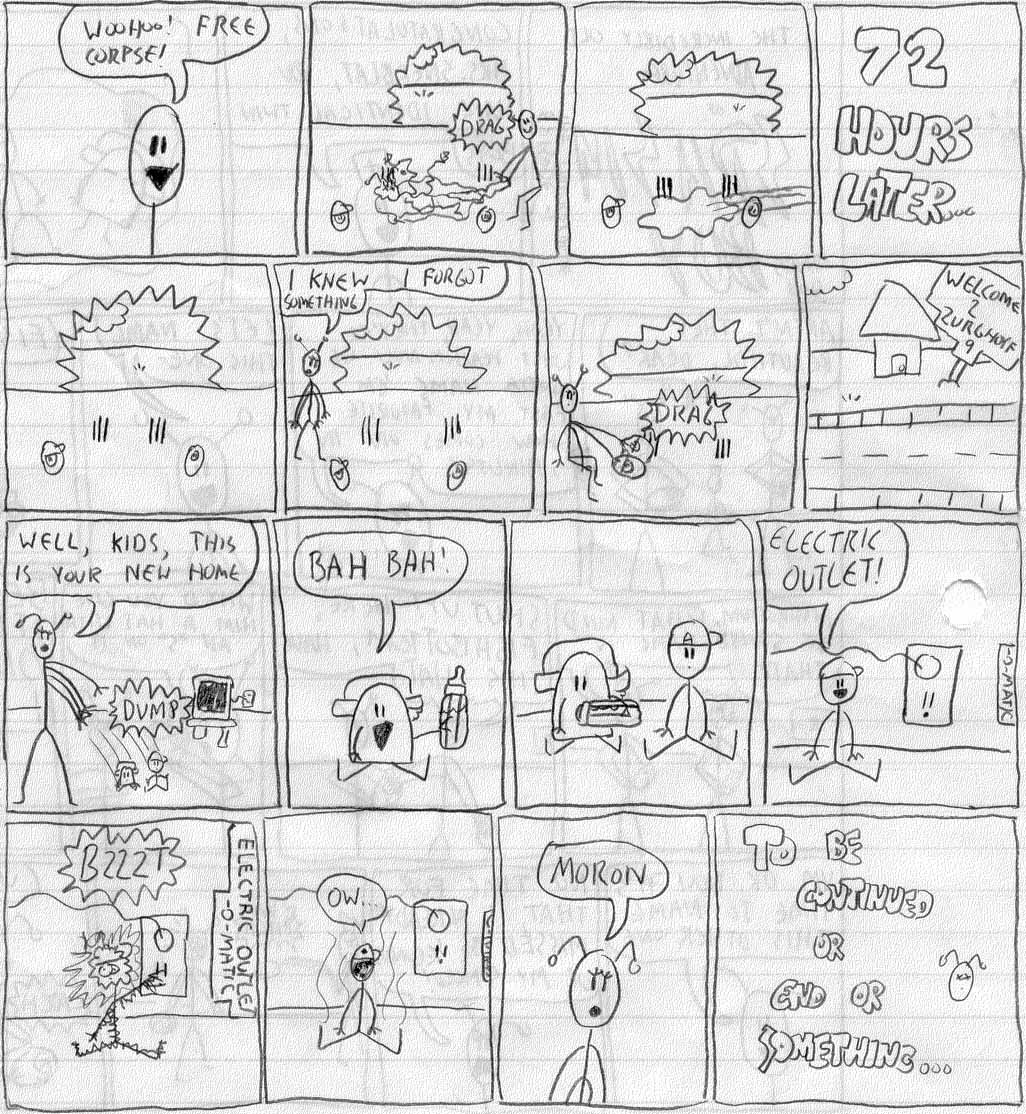 WOOHOO! FREE
CORPSE!
DRAG
72
HOURS
LATER...
I KNEW I FORGOT
SOMETHING
DRAG
WELCOME
2
ZURGHOFF
9
WELL, KIDS, THIS
IS YOUR NEW HOME
DUMP
BAH BAH!
ELECTRIC
OUTLET!
-O-MATIC
BZZZT
ELECTRIC OUTLET
-O-MATIC
OW...
MORON.
TO BE
CONTINUED
OR
END OR
SOMETHING...